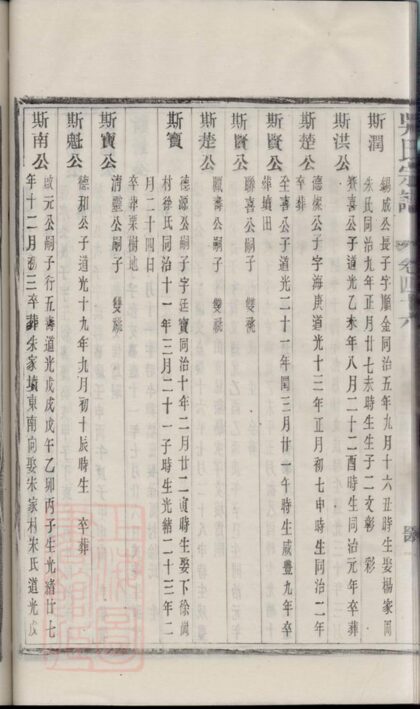 吳氏宗譜 卷四十六
斯潤
錫成公長子字順金同治五年九月十六丑時生娶楊家周
朱氏同治九年正月廿七未時生生子二文彰 彩
斯洪公
賽喜公子道光乙未年八月二十二酉時生同治元年卒葬
斯楚公
德樑公子字海庚道光十三年正月初七申時生同治二年
卒葬
斯賢公
全喜公子道光二十一年閏三月廿一午時生咸豐九年卒
葬墳田
斯賢公
聯喜公嗣子 雙祧
斯楚公
鳳壽公嗣子 雙祧
斯寶
德源公嗣子字廷寶同治十年二月廿二寅時生娶下徐
村徐氏同治十一年三月二十一子時生光緒二十三年二
月二十四日
卒葬栗樹地
斯寶公
清靈公嗣子 雙祧
斯魁公
德和公子道光十九年九月初十辰時生 卒葬
斯南公
啟元公嗣子行五壽道光戊戌戊午乙卯丙子生光緒廿七
年十二月初三卒葬朱家墳東南向娶朱家村宋氏道光戊